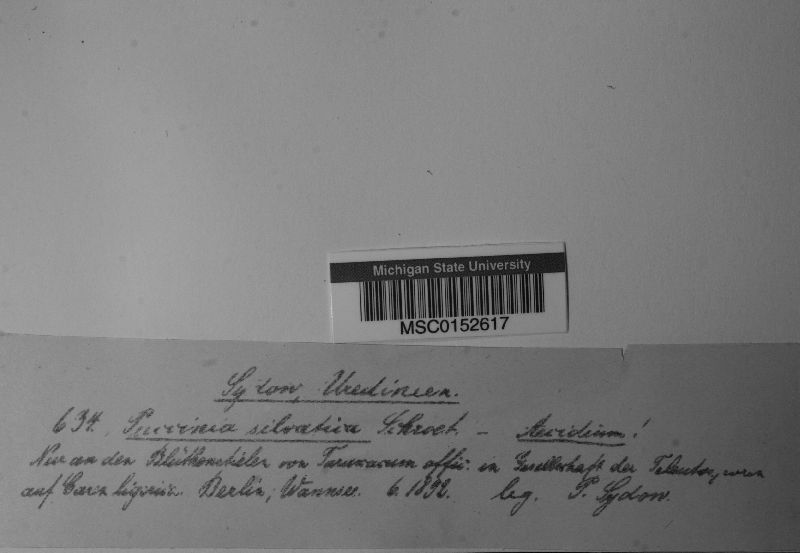 Michigan State University
MSC0152617
Sydow, Uredineen.
634. Puccinia silvatica Schroet. – Aecidium!
Nur an den Blüthenstielen von Taraxacum offic. in Gesellschaft der Teleutosporen
auf Carex ligerica. Berlin; Wannsee. 6.1892. leg. P. Sydow.